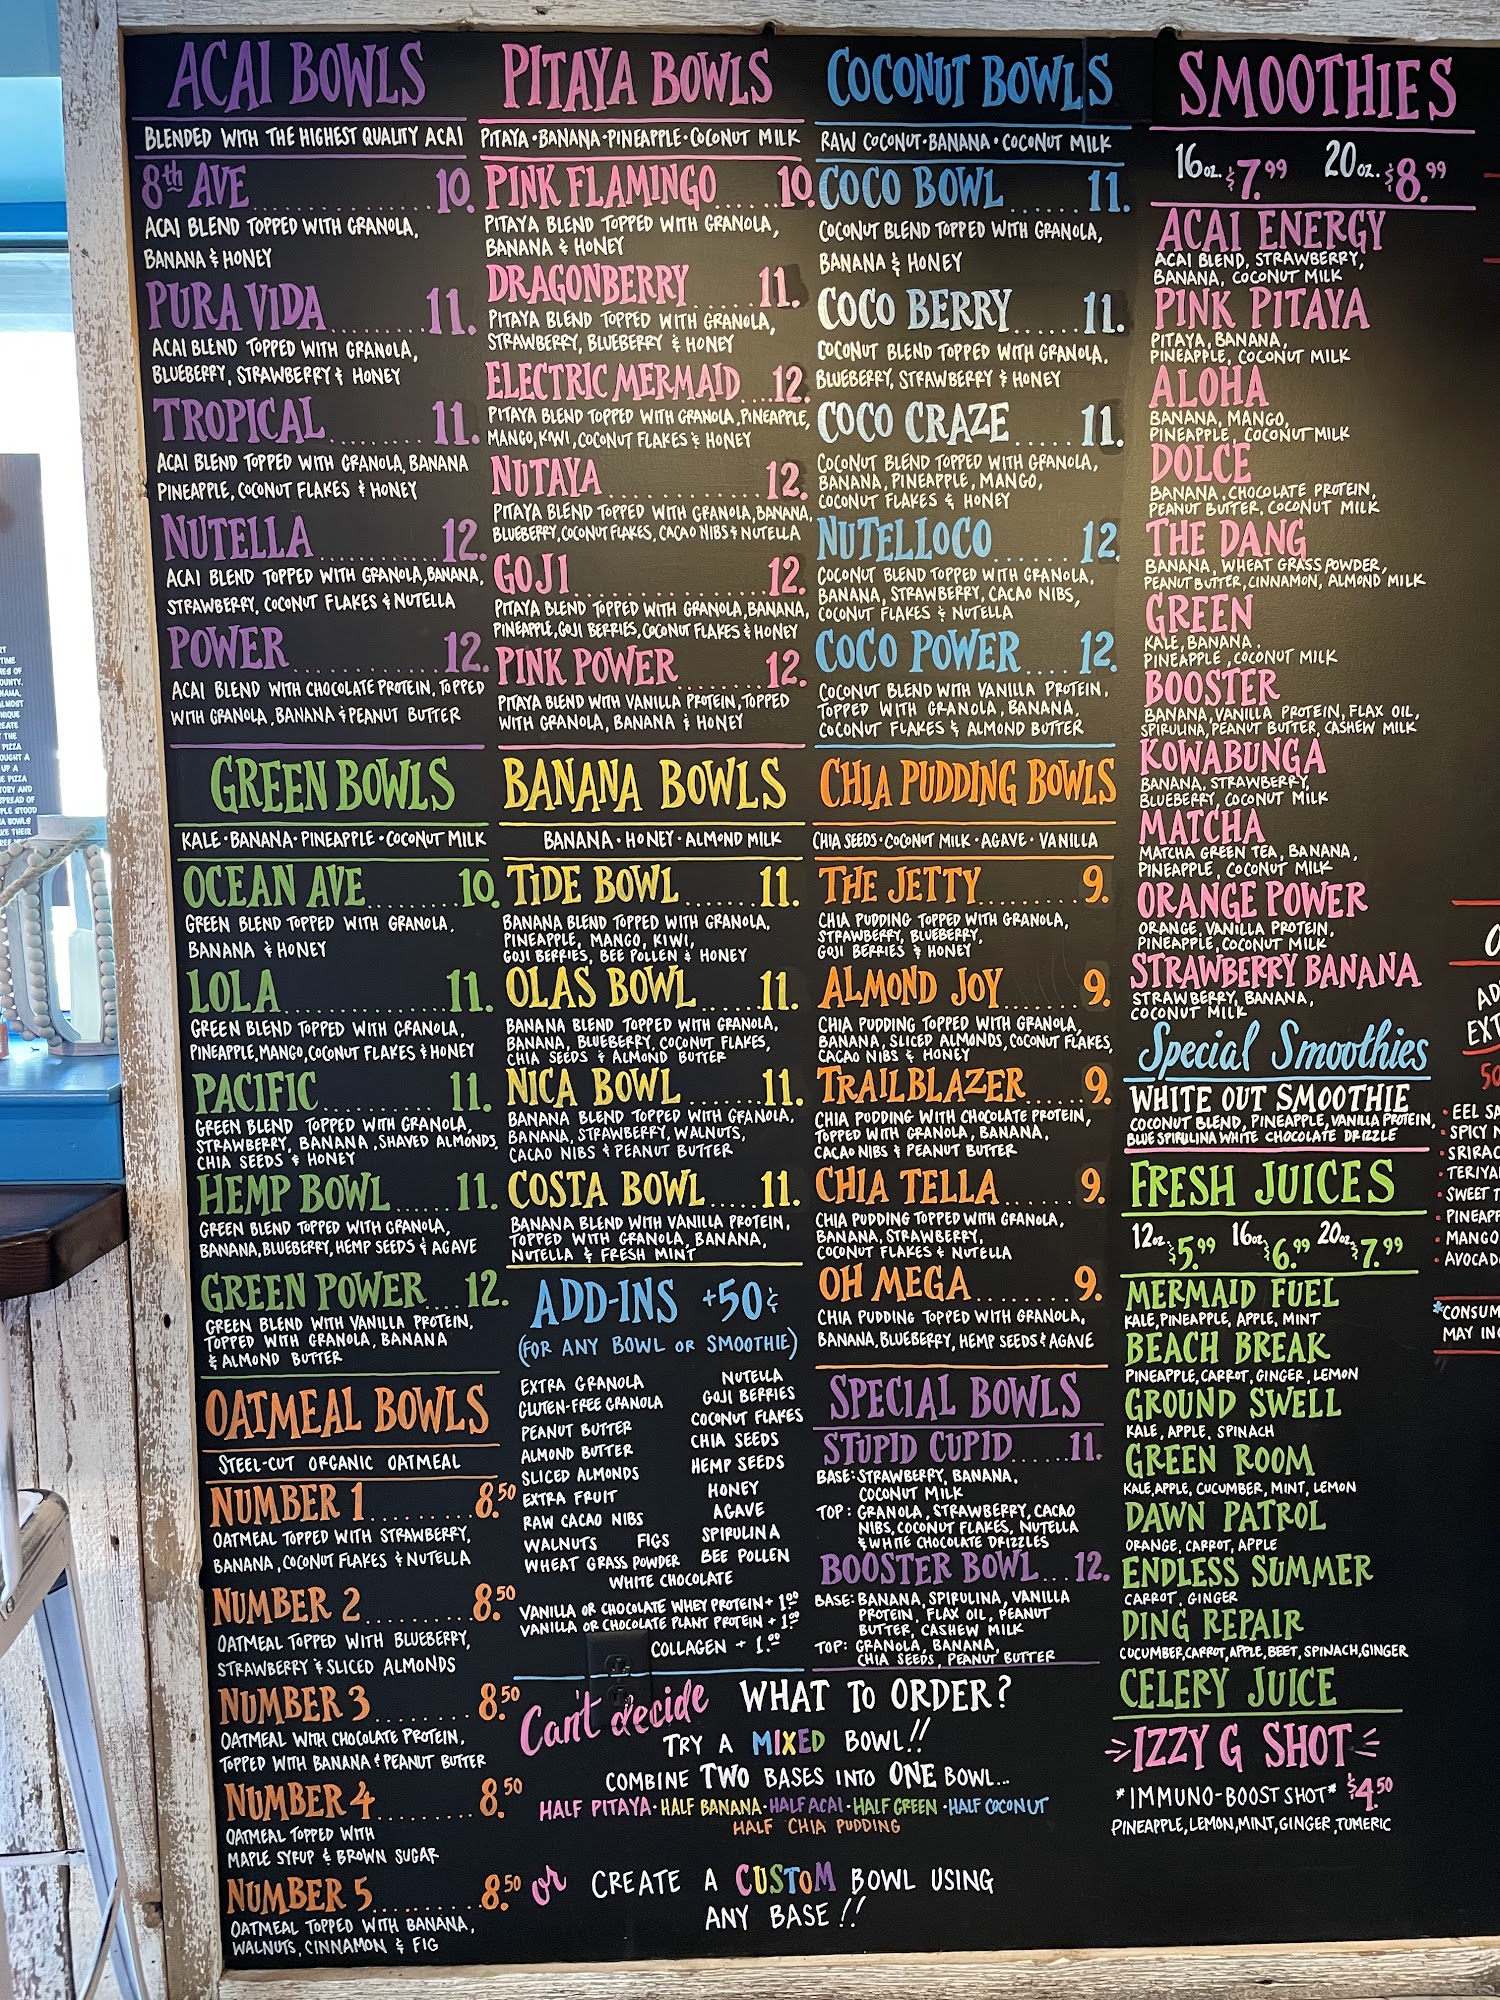 ACAI BOWLS
BLENDED WITH THE HIGHEST QUALITY ACAI
8th AVE 10.
ACAI BLEND TOPPED WITH GRANOLA,
BANANA & HONEY
PURA VIDA 11.
ACAI BLEND TOPPED WITH GRANOLA,
BLUEBERRY, STRAWBERRY & HONEY
TROPICAL 11.
ACAI BLEND TOPPED WITH GRANOLA, BANANA
PINEAPPLE, COCONUT FLAKES & HONEY
NUTELLA 12.
ACAI BLEND TOPPED WITH GRANOLA, BANANA,
STRAWBERRY, COCONUT FLAKES & NUTELLA
POWER 12.
ACAI BLEND WITH CHOCOLATE PROTEIN, TOPPED
WITH GRANOLA, BANANA & PEANUT BUTTER
GREEN BOWLS
KALE • BANANA • PINEAPPLE • COCONUT MILK
OCEAN AVE 10.
GREEN BLEND TOPPED WITH GRANOLA,
BANANA & HONEY
LOLA 11.
GREEN BLEND TOPPED WITH GRANOLA,
PINEAPPLE, MANGO, COCONUT FLAKES & HONEY
PACIFIC 11.
GREEN BLEND TOPPED WITH GRANOLA,
STRAWBERRY, BANANA, SHAVED ALMONDS,
CHIA SEEDS & HONEY
HEMP BOWL 11.
GREEN BLEND TOPPED WITH GRANOLA,
BANANA, BLUEBERRY, HEMP SEEDS & AGAVE
GREEN POWER 12.
GREEN BLEND WITH VANILLA PROTEIN,
TOPPED WITH GRANOLA, BANANA
& ALMOND BUTTER
OATMEAL BOWLS
STEEL-CUT ORGANIC OATMEAL
NUMBER 1 8.50
OATMEAL TOPPED WITH STRAWBERRY,
BANANA, COCONUT FLAKES & NUTELLA
NUMBER 2 8.50
OATMEAL TOPPED WITH BLUEBERRY,
STRAWBERRY & SLICED ALMONDS
NUMBER 3 8.50
OATMEAL WITH CHOCOLATE PROTEIN,
TOPPED WITH BANANA & PEANUT BUTTER
NUMBER 4 8.50
OATMEAL TOPPED WITH
MAPLE SYRUP & BROWN SUGAR
NUMBER 5 8.50
OATMEAL TOPPED WITH BANANA,
WALNUTS, CINNAMON & FIG
PITAYA BOWLS
PITAYA • BANANA • PINEAPPLE • COCONUT MILK
PINK FLAMINGO 10.
PITAYA BLEND TOPPED WITH GRANOLA,
BANANA & HONEY
DRAGONBERRY 11.
PITAYA BLEND TOPPED WITH GRANOLA,
STRAWBERRY, BLUEBERRY & HONEY
ELECTRIC MERMAID 12.
PITAYA BLEND TOPPED WITH GRANOLA, PINEAPPLE,
MANGO, KIWI, COCONUT FLAKES & HONEY
NUTAYA 12.
PITAYA BLEND TOPPED WITH GRANOLA, BANANA,
BLUEBERRY, COCONUT FLAKES, CACAO NIBS & NUTELLA
GOJI 12.
PITAYA BLEND TOPPED WITH GRANOLA, BANANA,
PINEAPPLE, GOJI BERRIES, COCONUT FLAKES & HONEY
PINK POWER 12.
PITAYA BLEND WITH VANILLA PROTEIN, TOPPED
WITH GRANOLA, BANANA & HONEY
BANANA BOWLS
BANANA • HONEY • ALMOND MILK
TIDE BOWL 11.
BANANA BLEND TOPPED WITH GRANOLA,
PINEAPPLE, MANGO, KIWI,
GOJI BERRIES, BEE POLLEN & HONEY
OLAS BOWL 11.
BANANA BLEND TOPPED WITH GRANOLA,
BANANA, BLUEBERRY, COCONUT FLAKES,
CHIA SEEDS & ALMOND BUTTER
NICA BOWL 11.
BANANA BLEND TOPPED WITH GRANOLA,
BANANA, STRAWBERRY, WALNUTS,
CACAO NIBS & PEANUT BUTTER
COSTA BOWL 11.
BANANA BLEND WITH VANILLA PROTEIN,
TOPPED WITH GRANOLA, BANANA,
NUTELLA & FRESH MINT
ADD-INS +50¢
(FOR ANY BOWL OR SMOOTHIE)
EXTRA GRANOLA
GLUTEN-FREE GRANOLA
PEANUT BUTTER
ALMOND BUTTER
SLICED ALMONDS
EXTRA FRUIT
RAW CACAO NIBS
WALNUTS FIGS
WHEAT GRASS POWDER
NUTELLA
GOJI BERRIES
COCONUT FLAKES
CHIA SEEDS
HEMP SEEDS
HONEY
AGAVE
SPIRULINA
BEE POLLEN
WHITE CHOCOLATE
VANILLA OR CHOCOLATE WHEY PROTEIN + 1.00
VANILLA OR CHOCOLATE PLANT PROTEIN + 1.00
COLLAGEN + 1.00
COCONUT BOWLS
RAW COCONUT • BANANA • COCONUT MILK
COCO BOWL 11.
COCONUT BLEND TOPPED WITH GRANOLA,
BANANA & HONEY
COCO BERRY 11.
COCONUT BLEND TOPPED WITH GRANOLA,
BLUEBERRY, STRAWBERRY & HONEY
COCO CRAZE 11.
COCONUT BLEND TOPPED WITH GRANOLA,
BANANA, PINEAPPLE, MANGO,
COCONUT FLAKES & HONEY
NUTELLOCO 12.
COCONUT BLEND TOPPED WITH GRANOLA,
BANANA, STRAWBERRY, CACAO NIBS,
COCONUT FLAKES & NUTELLA
COCO POWER 12.
COCONUT BLEND WITH VANILLA PROTEIN,
TOPPED WITH GRANOLA, BANANA,
COCONUT FLAKES & ALMOND BUTTER
CHIA PUDDING BOWLS
CHIA SEEDS • COCONUT MILK • AGAVE • VANILLA
THE JETTY 9.
CHIA PUDDING TOPPED WITH GRANOLA,
STRAWBERRY, BLUEBERRY,
GOJI BERRIES & HONEY
ALMOND JOY 9.
CHIA PUDDING TOPPED WITH GRANOLA,
BANANA, SLICED ALMONDS, COCONUT FLAKES,
CACAO NIBS & HONEY
TRAILBLAZER 9.
CHIA PUDDING WITH CHOCOLATE PROTEIN,
TOPPED WITH GRANOLA, BANANA,
CACAO NIBS & PEANUT BUTTER
CHIA TELLA 9.
CHIA PUDDING TOPPED WITH GRANOLA,
BANANA, STRAWBERRY,
COCONUT FLAKES & NUTELLA
OH MEGA 9.
CHIA PUDDING TOPPED WITH GRANOLA,
BANANA, BLUEBERRY, HEMP SEEDS & AGAVE
SPECIAL BOWLS
STUPID CUPID 11.
BASE: STRAWBERRY, BANANA,
COCONUT MILK
TOP: GRANOLA, STRAWBERRY, CACAO
NIBS, COCONUT FLAKES, NUTELLA
& WHITE CHOCOLATE DRIZZLES
BOOSTER BOWL 12.
BASE: BANANA, SPIRULINA, VANILLA
PROTEIN, FLAX OIL, PEANUT
BUTTER, CASHEW MILK
TOP: GRANOLA, BANANA,
CHIA SEEDS, PEANUT BUTTER
Can't decide WHAT TO ORDER?
TRY A MIXED BOWL!!
COMBINE TWO BASES INTO ONE BOWL...
HALF PITAYA • HALF BANANA • HALF ACAI • HALF GREEN • HALF COCONUT
HALF CHIA PUDDING
or CREATE A CUSTOM BOWL USING
ANY BASE!!
SMOOTHIES
16oz. $7.99 20oz. $8.99
ACAI ENERGY
ACAI BLEND, STRAWBERRY,
BANANA, COCONUT MILK
PINK PITAYA
PITAYA, BANANA,
PINEAPPLE, COCONUT MILK
ALOHA
BANANA, MANGO,
PINEAPPLE, COCONUT MILK
DOLCE
BANANA, CHOCOLATE PROTEIN,
PEANUT BUTTER, COCONUT MILK
THE DANG
BANANA, WHEAT GRASS POWDER,
PEANUT BUTTER, CINNAMON, ALMOND MILK
GREEN
KALE, BANANA,
PINEAPPLE, COCONUT MILK
BOOSTER
BANANA, VANILLA PROTEIN, FLAX OIL,
SPIRULINA, PEANUT BUTTER, CASHEW MILK
KOWABUNGA
BANANA, STRAWBERRY,
BLUEBERRY, COCONUT MILK
MATCHA
MATCHA GREEN TEA, BANANA,
PINEAPPLE, COCONUT MILK
ORANGE POWER
ORANGE, VANILLA PROTEIN,
PINEAPPLE, COCONUT MILK
STRAWBERRY BANANA
STRAWBERRY, BANANA,
COCONUT MILK
Special Smoothies
WHITE OUT SMOOTHIE
COCONUT BLEND, PINEAPPLE, VANILLA PROTEIN,
BLUE SPIRULINA WHITE CHOCOLATE DRIZZLE
FRESH JUICES
12oz. $5.99 16oz. $6.99 20oz. $7.99
MERMAID FUEL
KALE, PINEAPPLE, APPLE, MINT
BEACH BREAK
PINEAPPLE, CARROT, GINGER, LEMON
GROUND SWELL
KALE, APPLE, SPINACH
GREEN ROOM
KALE, APPLE, CUCUMBER, MINT, LEMON
DAWN PATROL
ORANGE, CARROT, APPLE
ENDLESS SUMMER
CARROT, GINGER
DING REPAIR
CUCUMBER, CARROT, APPLE, BEET, SPINACH, GINGER
CELERY JUICE
IZZY G SHOT
*IMMUNO-BOOST SHOT* $4.50
PINEAPPLE, LEMON, MINT, GINGER, TUMERIC
EXT
• EEL SA
• SPICY
• SRIRAC
• TERIYA
• SWEET T
• PINEAP
• MANGO
• AVOCAD
*CONSUM
MAY INC